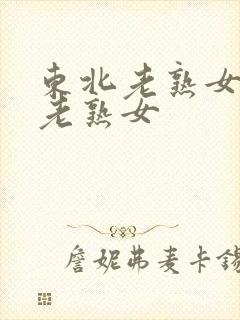 東北老熟女
老熟女
詹妮弗麦卡錫